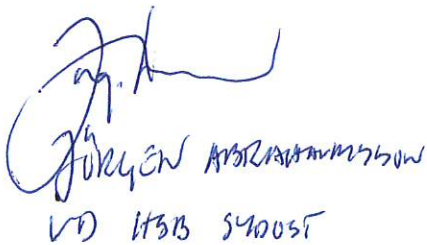 JÖRGEN ABRAHAMSSON
VD HSB SYDOST